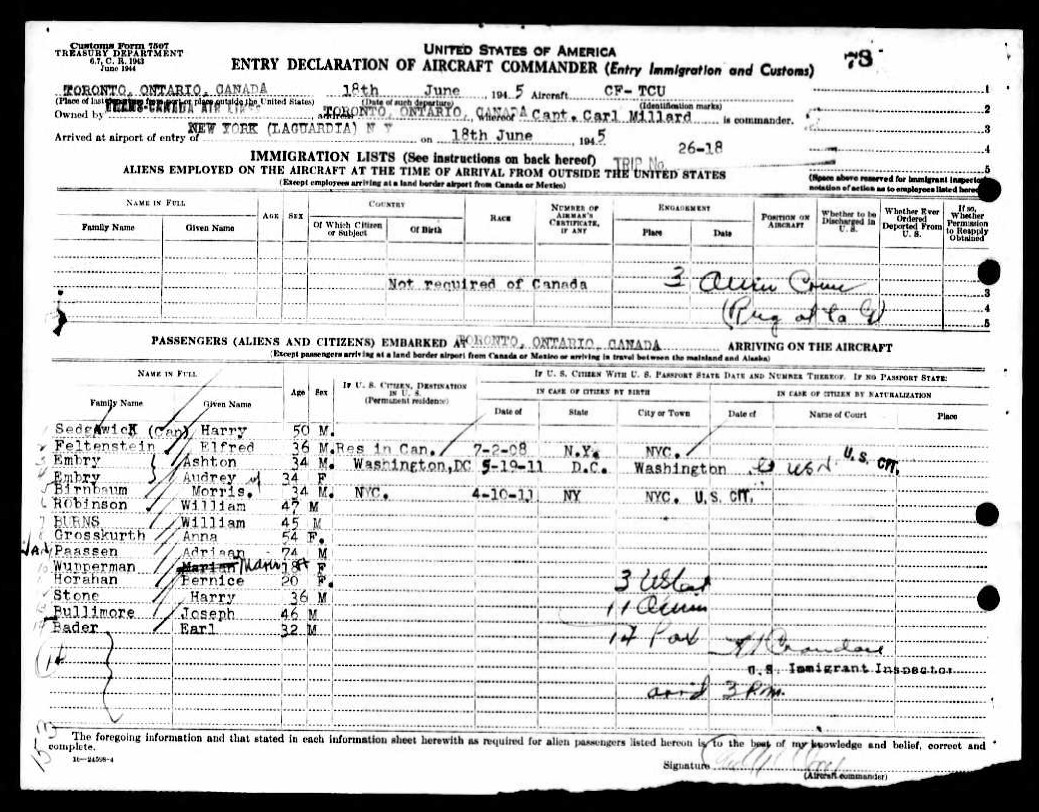 Customs Form 7507
TREASURY DEPARTMENT
6.7, C. R. 1943
June 1944
UNITED STATES OF AMERICA
78
ENTRY DECLARATION OF AIRCRAFT COMMANDER (Entry Immigration and Customs)
TORONTO, ONTARIO, CANADA 18th June, 1945 Aircraft CF- TCU 1
(Place of last departure from port or place outside the United States) (Date of such departure) (Identification marks) 2
Owned by TRANS-CANADA AIR TORONTO, ONTARIO, CANADA whereof Capt. Carl Millard is commander. 3
Arrived at airport of entry of NEW YORK (LAGUARDIA) N Y on 18th June 1945 4
26-18
IMMIGRATION LISTS (See instructions on back hereof) TRIP No. 5
ALIENS EMPLOYED ON THE AIRCRAFT AT THE TIME OF ARRIVAL FROM OUTSIDE THE UNITED STATES
(Except employees arriving at a land border airport from Canada or Mexico)
(Space above reserved for immigrant inspector's notation of action as to employees listed hereon)
NAME IN FULL AGE SEX COUNTRY RACE NUMBER OF AIRMAN'S CERTIFICATE, IF ANY ENGAGEMENT POSITION ON AIRCRAFT Whether to be Discharged in U. S. Whether Ever Ordered Deported From U. S. If so, Whether Permission to Reapply Obtained
Family Name Given Name Of Which Citizen or Subject Of Birth Place Date
Not required of Canada 3 Alien Crew 3
4
5
PASSENGERS (ALIENS AND CITIZENS) EMBARKED AT TORONTO, ONTARIO, CANADA ARRIVING ON THE AIRCRAFT
(Except passengers arriving at a land border airport from Canada or Mexico or arriving in travel between the mainland and Alaska)
NAME IN FULL Age Sex IF U. S. CITIZEN, DESTINATION IN U. S. (Permanent residence) IF U. S. CITIZEN WITH U. S. PASSPORT STATE DATE AND NUMBER THEREOF. IF NO PASSPORT STATE:
IN CASE OF CITIZEN BY BIRTH IN CASE OF CITIZEN BY NATURALIZATION
Family Name Given Name Date of State City or Town Date of Name of Court Place
Sedgwick (Can) Harry 50 M.
Feltenstein Elfred 36 M. Res in Can. 7-2-08 N.Y. NYC. U.S. CIT.
Embry Ashton 34 M. Washington, DC 5-19-11 D.C. Washington
Embry Audrey 34 F
Birnbaum Morris. 34 M. NYC. 4-10-11 NY NYC. U.S. CIT.
Robinson William 47 M
BURNS William 45 M
Grosskurth Anna 54 F.
Van Paassen Adriaan 74 M
Wupperman Marian 18 F
Horahan Bernice 20 F. 3 USCit
Stone Harry 36 M
Bullimore Joseph 46 M 11 Alien
Bader Earl 32 M 14 Pax
14
U.S. Immigrant Inspector
arrd 3 P.m.
The foregoing information and that stated in each information sheet herewith as required for alien passengers listed hereon is to the best of my knowledge and belief, correct and
complete.
16-24598-4
Signature
(Aircraft commander)